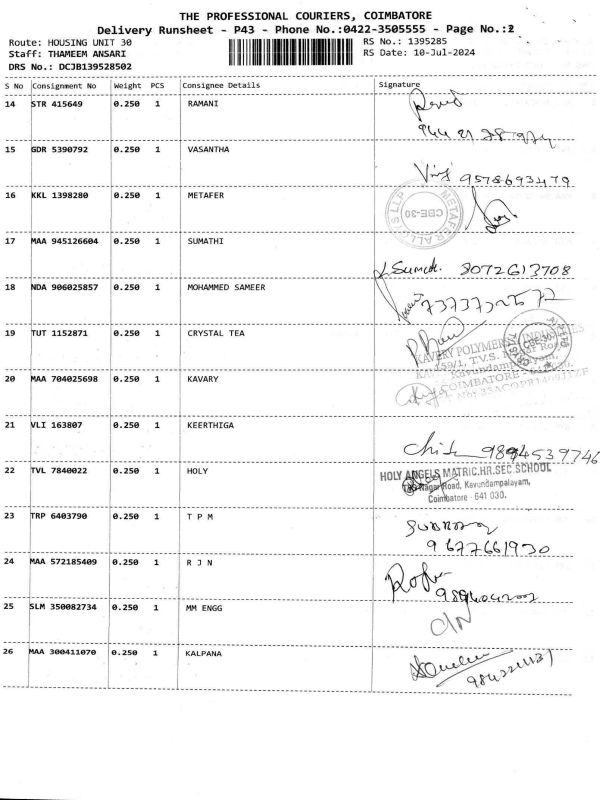 THE PROFESSIONAL COURIERS, COIMBATORE
Delivery Runsheet - P43 - Phone No.:0422-3505555 - Page No.:2
Route: HOUSING UNIT 30
RS No.: 1395285
Staff: THAMEEM ANSARI
RS Date: 10-Jul-2024
DRS No.: DCJB139528502
S No Consignment No Weight PCS Consignee Details Signature
14 STR 415649 0.250 1 RAMANI
15 GDR 5390792 0.250 1 VASANTHA
9578693479
16 KKL 1398280 0.250 1 METAFER
CBE-30
17 MAA 945126604 0.250 1 SUMATHI
Sumati 8072613708
18 NDA 906025857 0.250 1 MOHAMMED SAMEER
19 TUT 1152871 0.250 1 CRYSTAL TEA
KAVERY POLYMER INDUSTRIES
COIMBATORE
20 MAA 704025698 0.250 1 KAVARY
21 VLI 163807 0.250 1 KEERTHIGA
9894539746
22 TVL 7840022 0.250 1 HOLY
HOLY ANGELS MATRIC.HR.SEC.SCHOOL
Nagar Road, Kavundampalayam,
Coimbatore - 641 030.
23 TRP 6403790 0.250 1 T P M
9677661930
24 MAA 572185409 0.250 1 R J N
25 SLM 350082734 0.250 1 MM ENGG
26 MAA 300411070 0.250 1 KALPANA